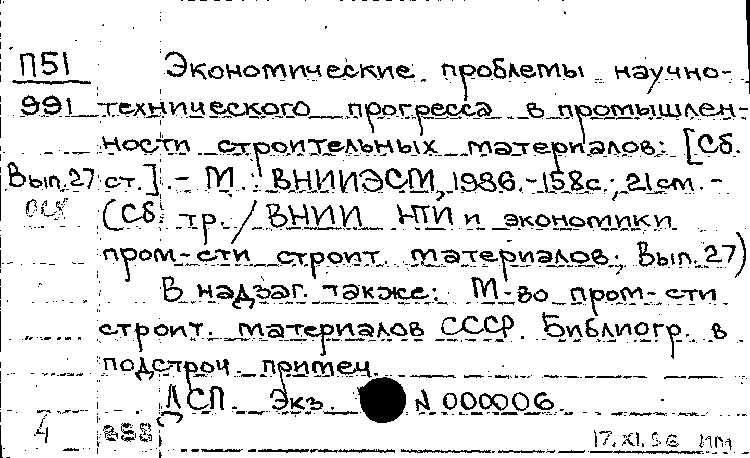 П51 Экономические проблемы научно-
991 технического прогресса в промышлен-
ности строительных материалов: [Сб.
Вып.27 ст.]. - М.: ВНИИЭСМ, 1986. - 158с.; 21см. -
(Сб. тр. / ВНИИ НТИ и экономики
пром-сти строит. материалов; Вып. 27)
В надзаг. также: М-во пром-сти
строит. материалов СССР. Библиогр. в
подстроч. примеч.
ДСП. Экз. N 000006
4 888 17.XI.86 ИМ